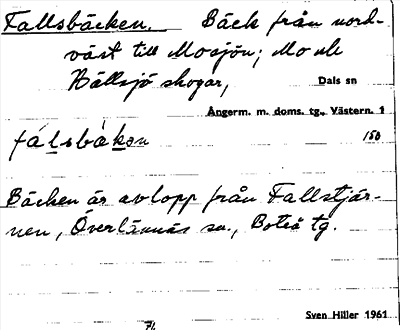 Fallsbäcken. Bäck från nord-
väst till Mosjön; Mo och
Hällsjö skogar, Dals sn
Ångerm. m. doms. tg., Västern. 1
fálsbàkən 150
Bäcken är avlopp från Fallstjär-
nen, Överlännäs sn., Boteå tg.
Sven Hiller 1961